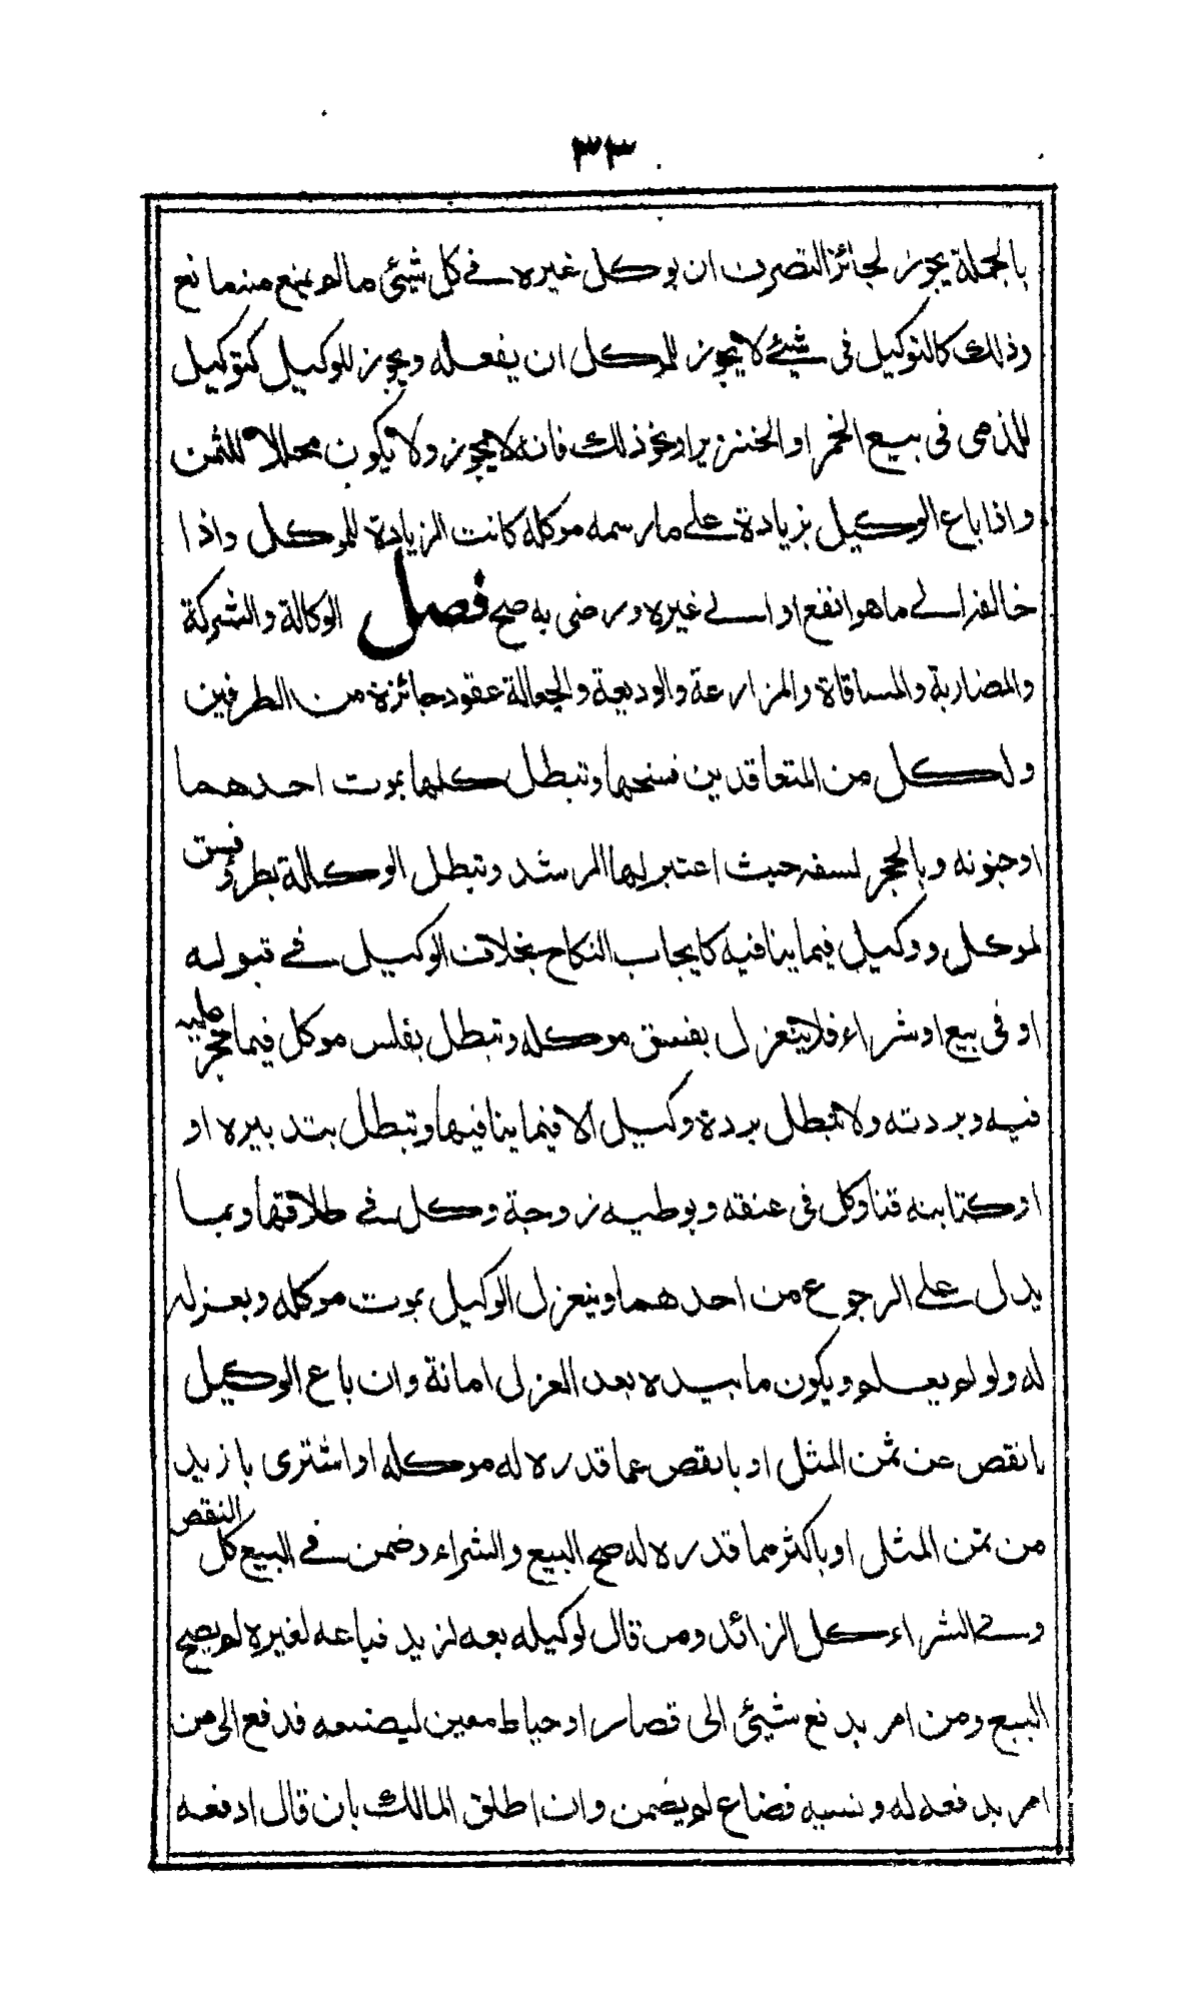 ٣٣
بالجملة يجوز لجائز التصرف ان يوكل غيره في كل شيئ مالم يمنع منه مانع
وذلك كالتوكيل فى شيئ لا يجوز للموكل ان يفعله ويجوز للوكيل كتوكيل
للذمى فى بيع الخمر او الخنزير او نحو ذلك فانه لا يجوز ولا يكون محللا للثمن
واذا باع الوكيل بزيادة على ما رسمه موكله كانت الزيادة للموكل واذا
خالفه الى ما هو انفع او الى غيره ورضى به صح فصل الوكالة والشركة
والمضاربة والمساقاة والمزارعة والوديعة والجعالة عقود جائزة من الطرفين
ولكل من المتعاقدين فسخها وتبطل كلها بموت احدهما
او جنونه وبالحجر لسفه حيث اعتبر لها الرشد وتبطل الوكالة بطرؤ فسق
لموكل ووكيل فيما ينافيه كايجاب النكاح بخلاف الوكيل في قبوله
او فى بيع او شراء فلا ينعزل بفسق موكله وتبطل بفلس موكل فيما حجر عليه
فيه وبردته ولا تبطل بردة وكيل الا فيما ينافيها وتبطل بتدبيره او
او كتابته قنا وكل فى عتقه وبوطيه زوجة وكل في طلاقها وبما
يدل على الرجوع من احدهما وينعزل الوكيل بموت موكله وبعزله
له ولو لم يعلم ويكون ما بيده بعد العزل امانة وان باع الوكيل
بانقص عن ثمن المثل او بانقص عما قدره له موكله او اشترى بازيد
من ثمن المثل او باكثر مما قدره له صح البيع والشراء وضمن في البيع كل النقص
وفي الشراء كل الزائد ومن قال لوكيله بعه لزيد فباعه لغيره لم يصح
البيع ومن امر بدفع شيئ الى قصار او خياط معين ليصنعه فدفع الى من
امر بدفعه له ونسيه فضاع لم يضمن وان اطلق المالك بان قال ادفعه